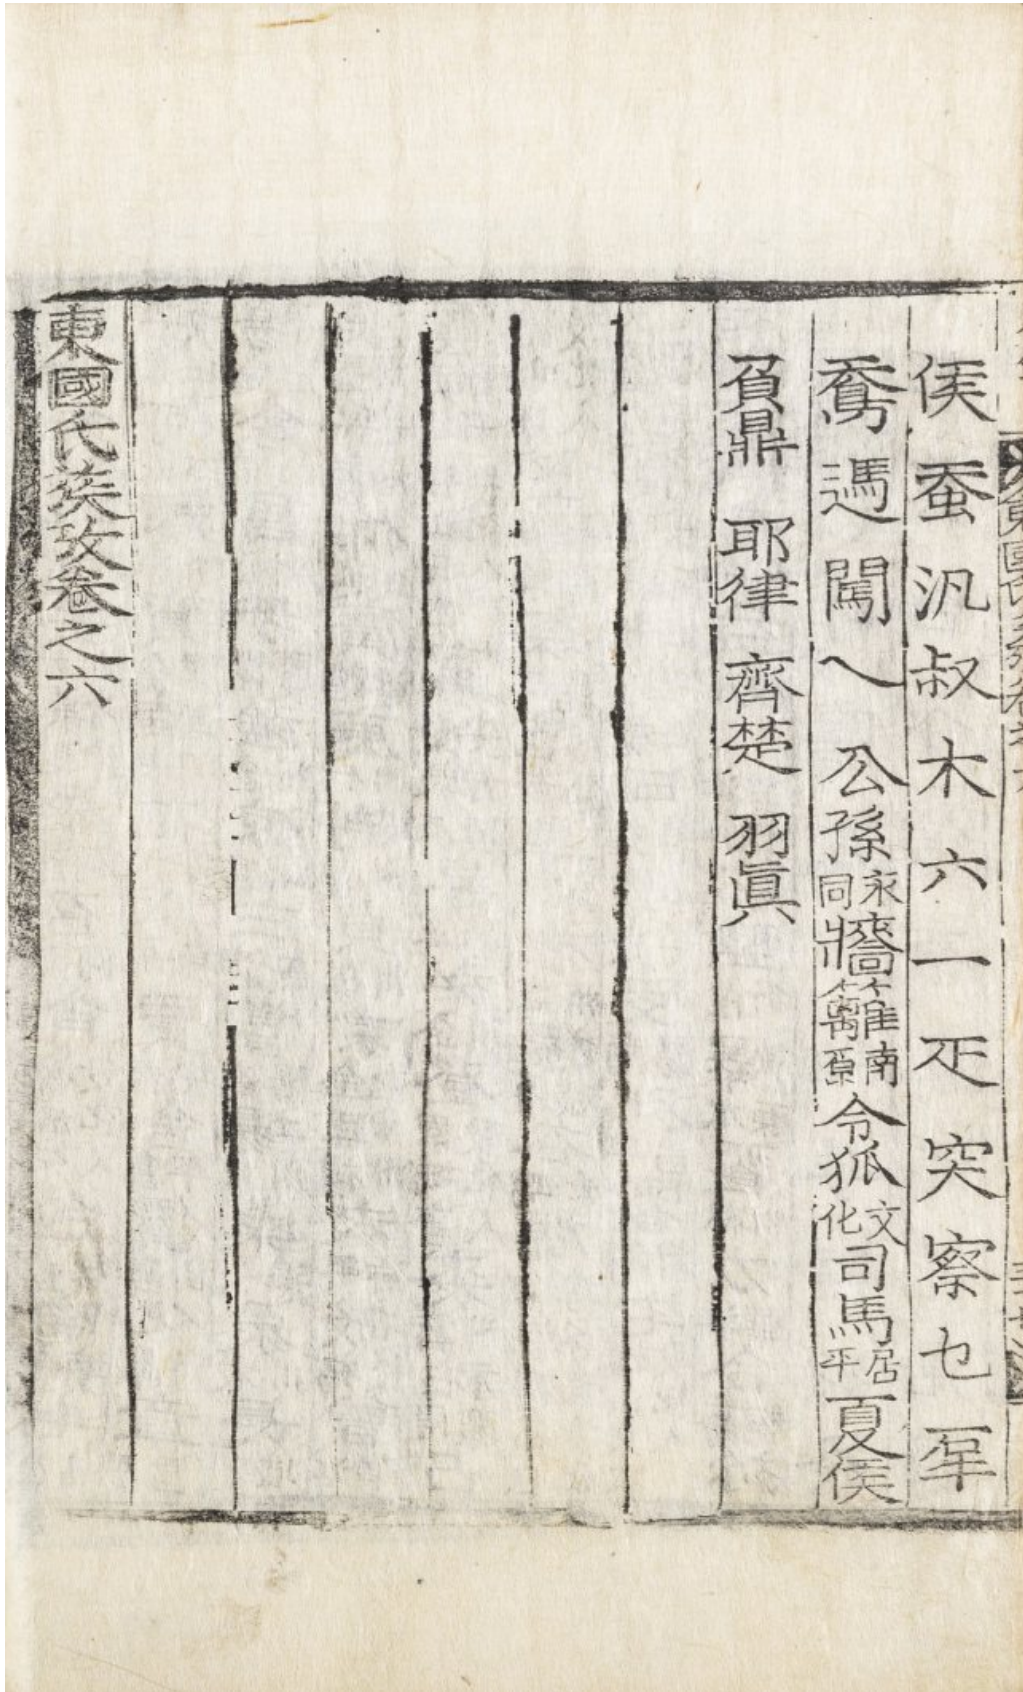 侯 蚕 汎 叔 木 六 一 疋 突 察 乜
遤 闖 乀 公孫 永同 牆籬 南原 令狐 文化 司馬 居平 夏侯
負鼎 耶律 齊楚 羽眞
東國氏族攷卷之六